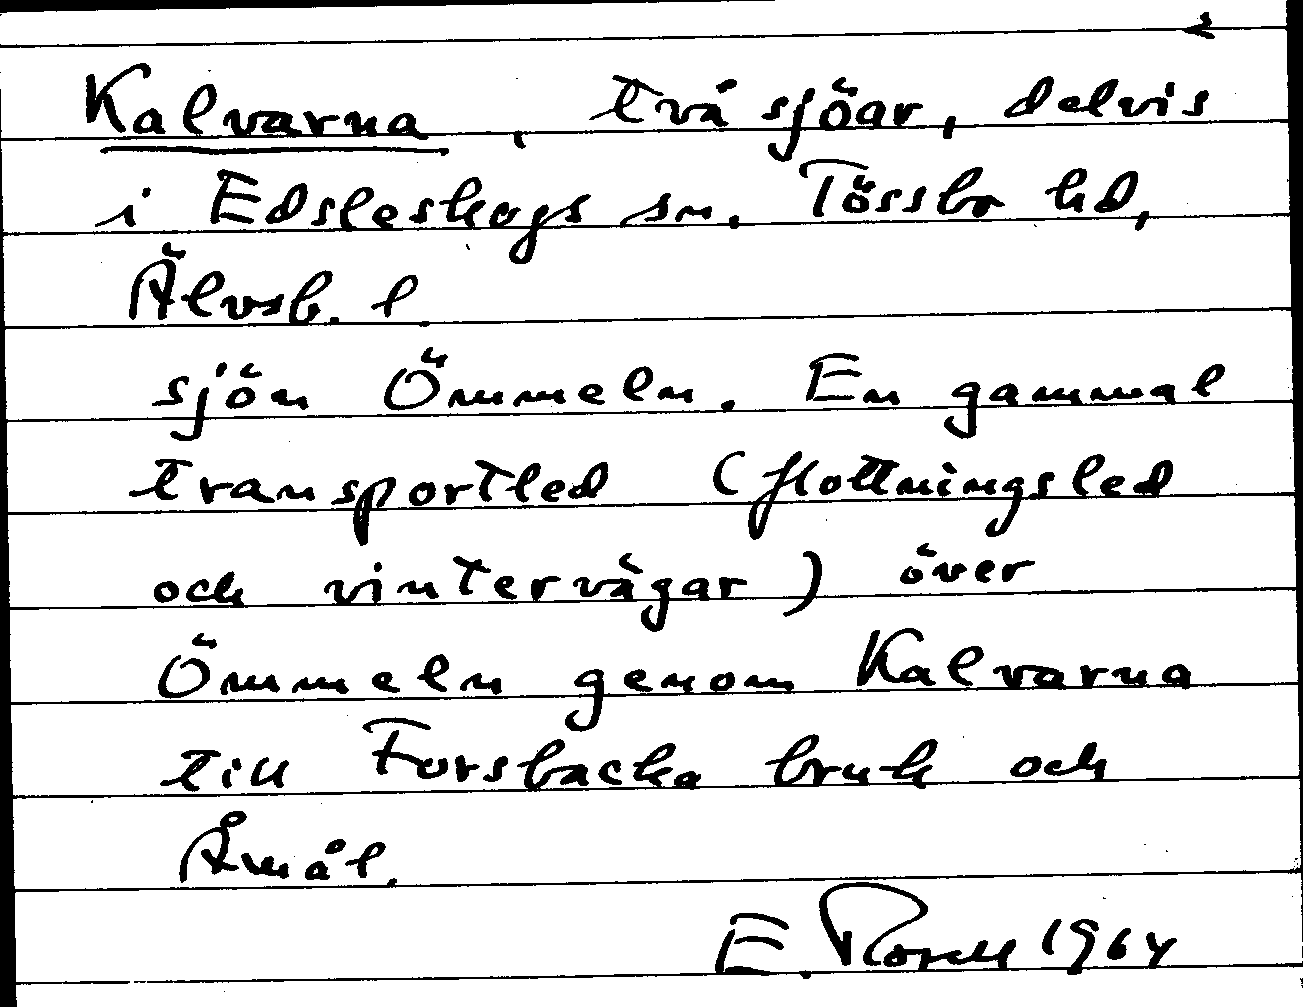 Kalvarna, två sjöar, delvis
i Edsleskogs sn. Tössbo hd,
Älvsb. l.
sjön Ömmeln. En gammal
transportled (flottningsled
och vintervägar) över
Ömmeln genom Kalvarna
till Forsbacka bruk och
Åmål.
E. 1964